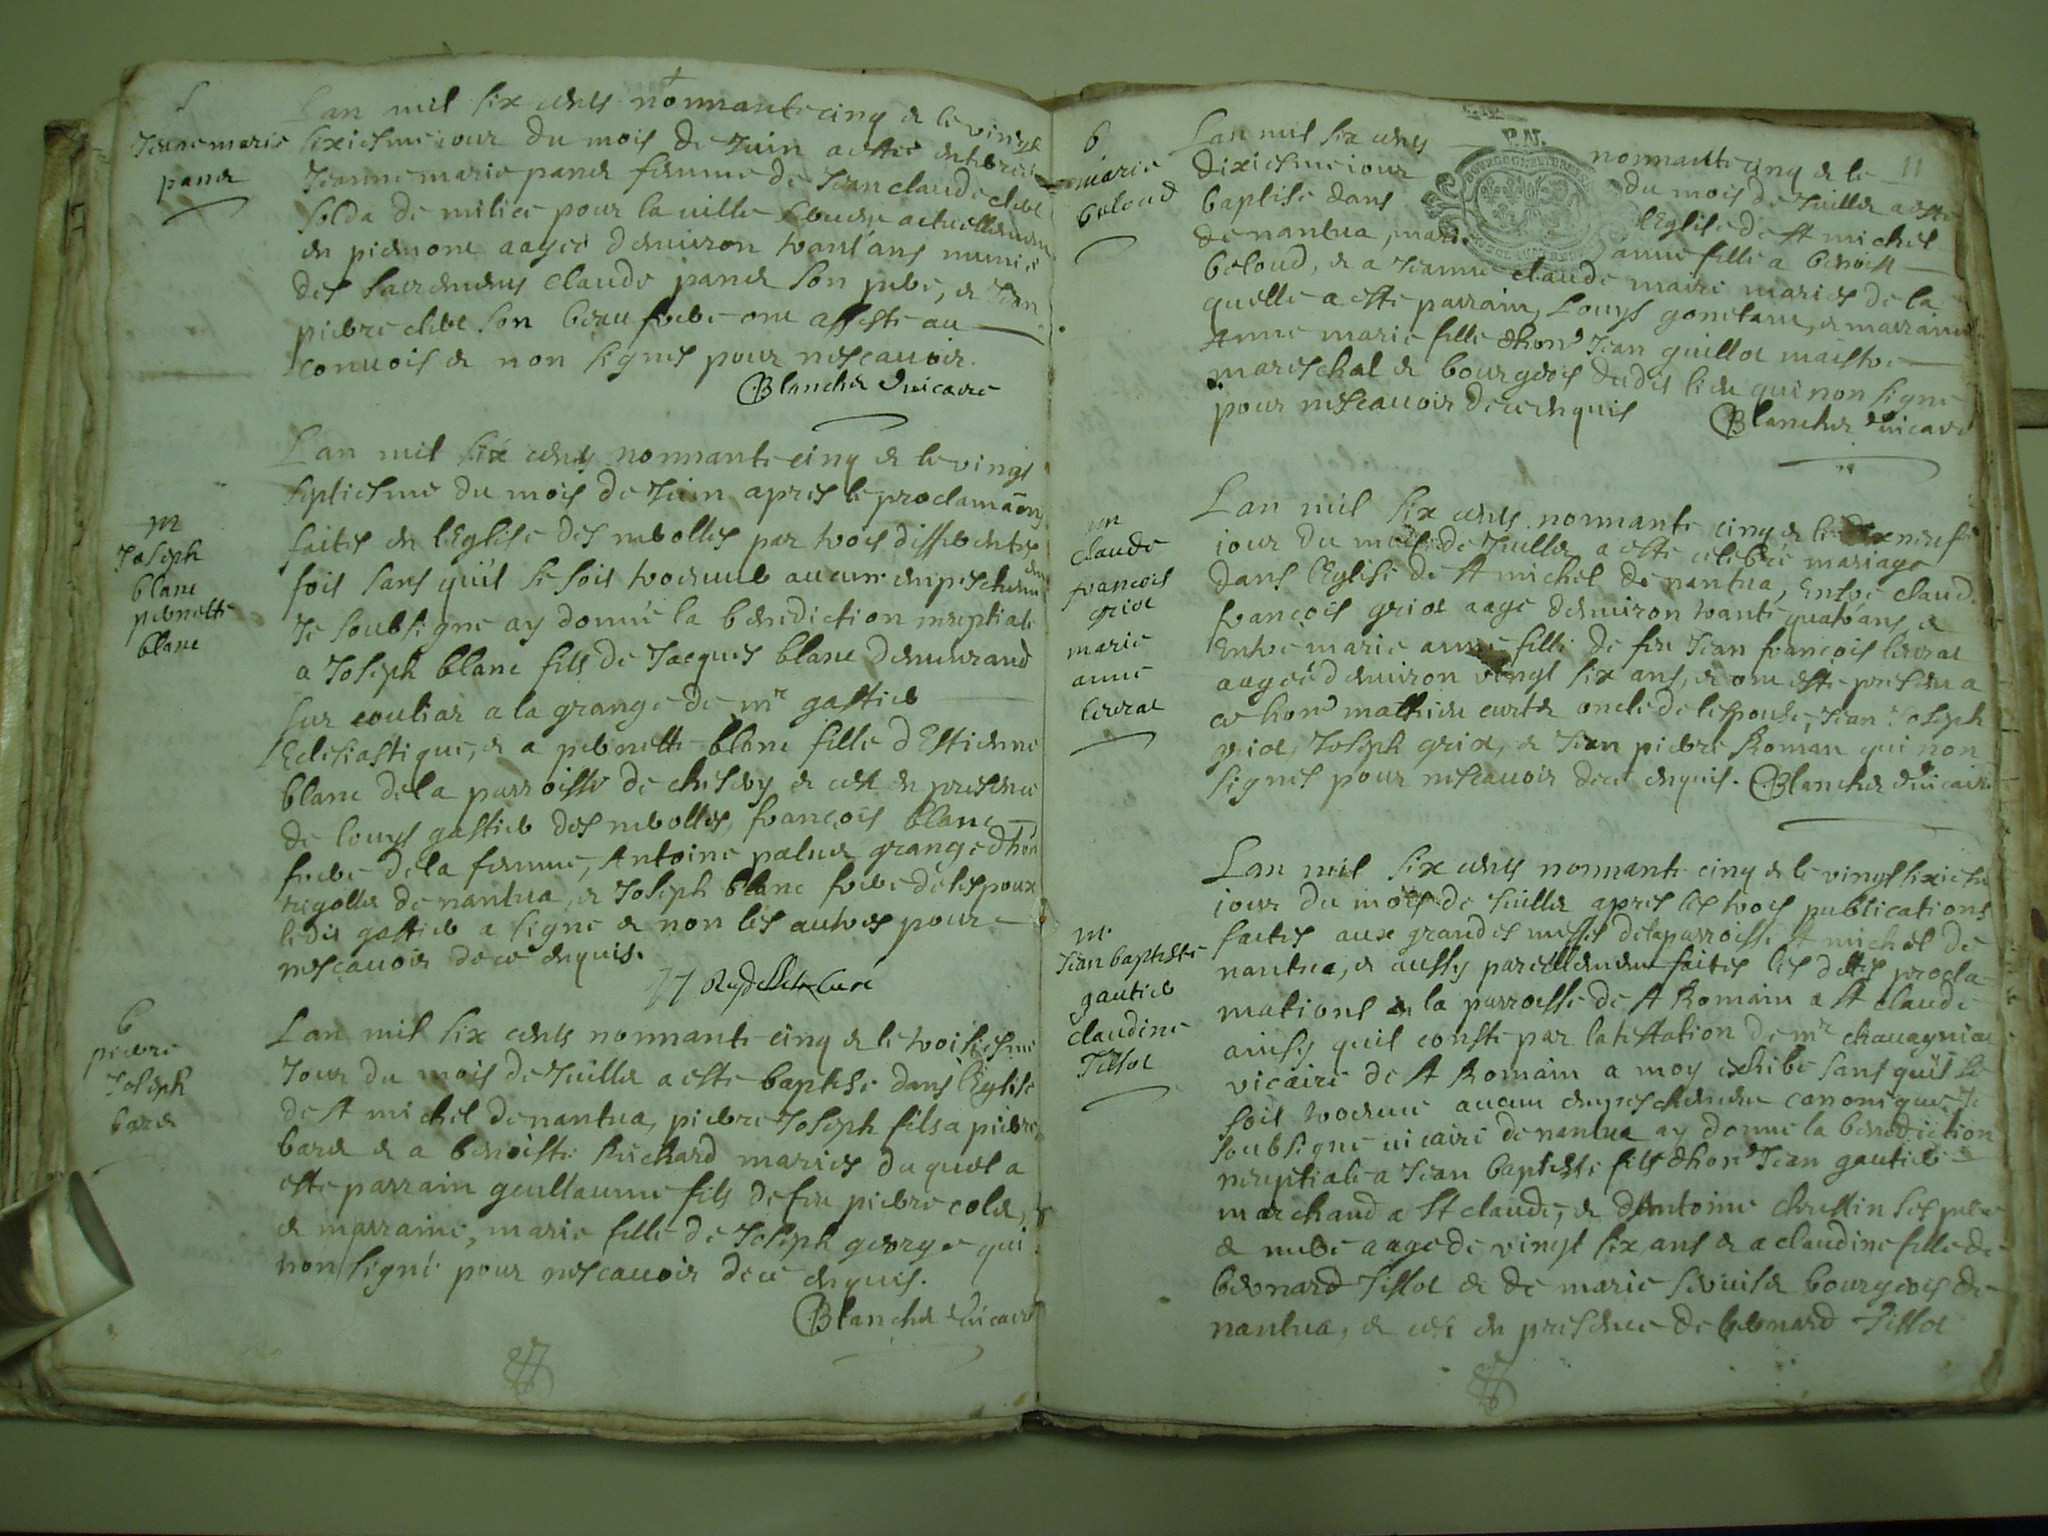 S
Jeanne marie
panet
Lan mil six cents nonnante cinq & le vingt
sixiesme iour du mois de Juin a esté enterrée
Jeanne marie panet femme de Jean claude
solda de milice pour la uille actuellement
en piemont aagée denuiron trant'ans munie
des sacrements claude panet son pere, & Jean
pierre son beau frere ont assisté au
conuois & non signes pour nescauoir.
Blanchet vicaire
m
Joseph
blanc
pernette
blanc
Lan mil six cents nonnante cinq & le vingt
septiesme du mois de Juin apres le proclamaons
faites en lEglise des nerolles par trois differentes
fois sans quil se soit treuué aucun empeschement
Je soubsigne ay donné la benediction nuptiale
a Joseph blanc fils de Jacques blanc demeurand
sur couliar a la grange de mr gastier
Eclesiastique, & a pernette blanc fille dEstienne
blanc de la parroisse de chesery & cest en presence
de louys gastier des nerolles, francois blanc
frere de la femme, Antoine palud grange dhon
regollet de nantua, & Joseph blanc frere de lespoux
ledit gastier a signe & non les autres pour
nescauoir de ce enquis.
curé
b
pierre
Joseph
baret
Lan mil six cents nonnante cinq & le troisiesme
Jour du mois de Juillet a esté baptisé dans lEglise
de st michel de nantua, pierre Joseph fils a pierre
baret & a benoiste Richard maries duquel a
esté parrain guillaume fils de feu pierre colet,
& marraine, marie fille de Joseph george qui
non signé pour nescauoir de ce enquis.
Blanchet vicaire
11
b
marie
beloud
Lan mil six cents nonnante cinq & le
dixiesme iour du mois de Juillet a esté
baptisé dans lEglise de st michel
de nantua, marie anne fille a benoist
beloud, & a Jeanne claude maire maries de la
quelle a esté parrain, Louys gonetant, & marraine
Anne marie fille dhon Jean guillot maistre
mareschal & bourgeois dudit lieu qui non signe
pour nescauoir de ce enquis
Blanchet vicaire
m
claude
francois
griot
marie
anne
Lan mil six cents nonnante cinq & le dixneuf
iour du mois de Juillet a esté celebré mariage
dans lEglise de st michel de nantua, Entre claude
francois griot aage denuiron trante quatr'ans, &
Entre marie anne fille de feu Jean francois
aagée denuiron vingt six ans, & ont esté presents a
ce hon mathieu curtet oncle de lespouse, Jean Joseph
griot, Joseph griot, & Jean pierre Roman qui non
signes pour nescauoir de ce enquis. Blanchet vicaire
m
Jean baptiste
gautier
claudine
Tissot
Lan mil six cents nonnante cinq & le vingt sixiesme
iour du mois de Juillet apres les trois publications
faites aux grandes messes de la parroisse st michel de
nantua, & aussy pareillement faites les dittes procla-
mations en la parroisse de st Romain a st claude
ainsy quil conste par latestation de mr
vicaire de st Romain a moy exhibé sans quil se
soit treuué aucun empeschement canonique Je
soubsigne vicaire de nantua ay donne la benediction
nuptiale a Jean baptiste fils dhon Jean gautier
marchand a st claude, & dAntoine chrestin ses pere
& mere aage de vingt six ans & a claudine fille de
bernard Tissot & de marie bourgeois de
nantua, & cest en presence de bernard Tissot